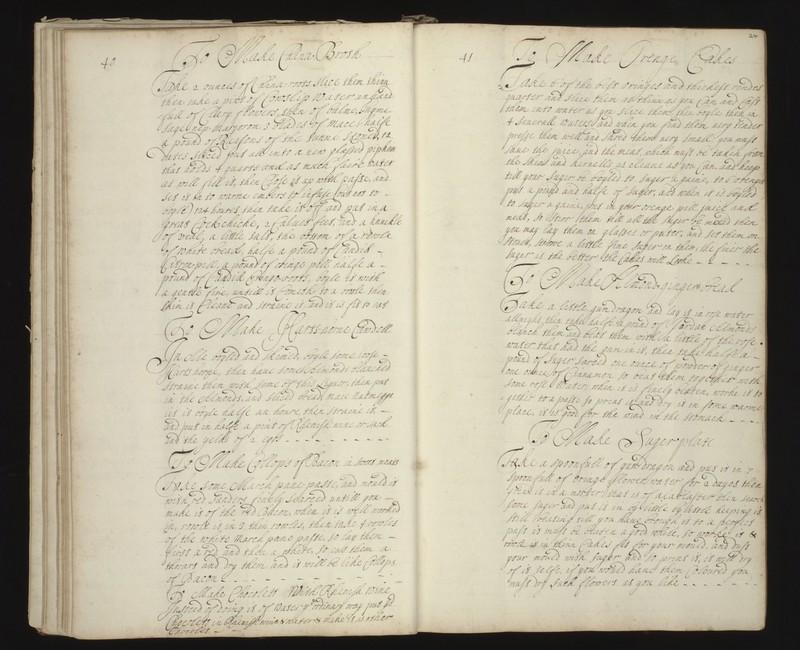 40
To Make China Broth
Take 2 ounces of China roots slice them thinn
then take a pint of Cowslip water
full of flowers, then of balme, thyme
sage, marjorom 3 blades of mace, halfe
a pound of
dates sliced put all into a new glassed pipken
that holds 4 quarts and as much faire water
as will fill it, then Close it up with paste, and
set it in to warme embers to infuse but not to
boyle 24 hours then take it off and put in a
great Cock chicke, 2 Calves feet, and a knuckle
of veale, a little salt, the bottom of a
of white bread, halfe a pound of Candid
Citron pill, a pound of orings pill, halfe a
pound of Candid roots, boyle it with
a gentle fire, untill it Cometh to a then
skim it Cleane and straine it, and it is fit to eat
To Make Hartshorne Cawdell
boyled and skimed, boyle some
Harts horne, then have some Almonds blanched
straine them with some of this liquor, then put
in the Almonds, and sliced bread, mace Nutmegge
let it boyle halfe an houre, then straine it,
and put in halfe a pint of Rhenish wine or sack
and the yelks of 2 eggs
To Make Collops of Bacon in sweet meats
Take some March pane paste, and mould it
with red Sanders finely searced untill you
make it of the red Bacon, when it is well worked
in, rowle it in 3 then rowles, then take 4 rowles
of the white March pane paste, so lay them
first a red and then a white, so cut them a
thwart and dry them and it will be like Collops
of Bacon
To Make Chocolett With Rhenish Wine
Instead of doing it of Water ye ordinary way put ye
Chocolett in Rhenish wine & water & make it as other
Chocolett
41
24
To Make Orenge Cakes
Take 6 of the best oringes and thickest rindes
quarter and slice them as thinn as you can, and Cast
them into water as you slice them then boyle them in
4 severall waters, and when you find them very tender
presse them well and shred them very small you must
save the juice, and the meat, which must be taken from
the skins and kernells as cleane as you can, and keep
till your sugar be boyled to sugar againe, to 6 orenges
put a pound and halfe of sugar, and when it is boyled
to sugar againe, put in your orenge pill, juice and
meat, so stirr them till all the sugar be mixed then
you may lay them on glasses or puter, and set them in
strew a little fine sugar on them, the finer the
sugar is the better the Cakes will Looke
To Make Almond gingerbread
Take a little gumdragon and lay it in rose water
all night, then take halfe a pound of Jordan Almonds
blanch them and beat them with a little of the rose
water that had the gum in it, then take halfe a
pound of sugar sarced one ounce of powder of ginger
one ounce of Cinnamon so beat them together with
some rose water, when it is finely beaten, worke it to
gether to a paste so print it and dry it in some warme
place, it is good for the wind in the stomach
To Make Sugerplate
Take a spoonfull of gumdragon and put it in 7
spoonfull of orenge flower water for 2 dayes then
it in a morter that is of Alablaster then searce
some sugar and put it in by little & little keeping it
still beating till you have enough it to a perfect
past it must be beaten a good while, so worke it &
rowle it in thinn Cakes fitt for your mould, and dust
your mould with sugar and so print it, it will dry
of it selfe, if you would have them Coloured you
must dry such flowers as you like